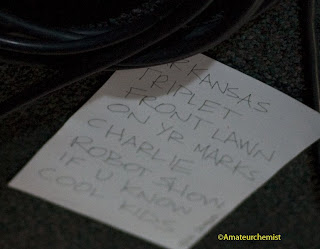 ARKANSAS
TRIPLET
FRONT LAWN
ON YR MARKS
CHARLIE
ROBOT SHOW
IF U KNOW
COOL KIDS
©Amateurchemist